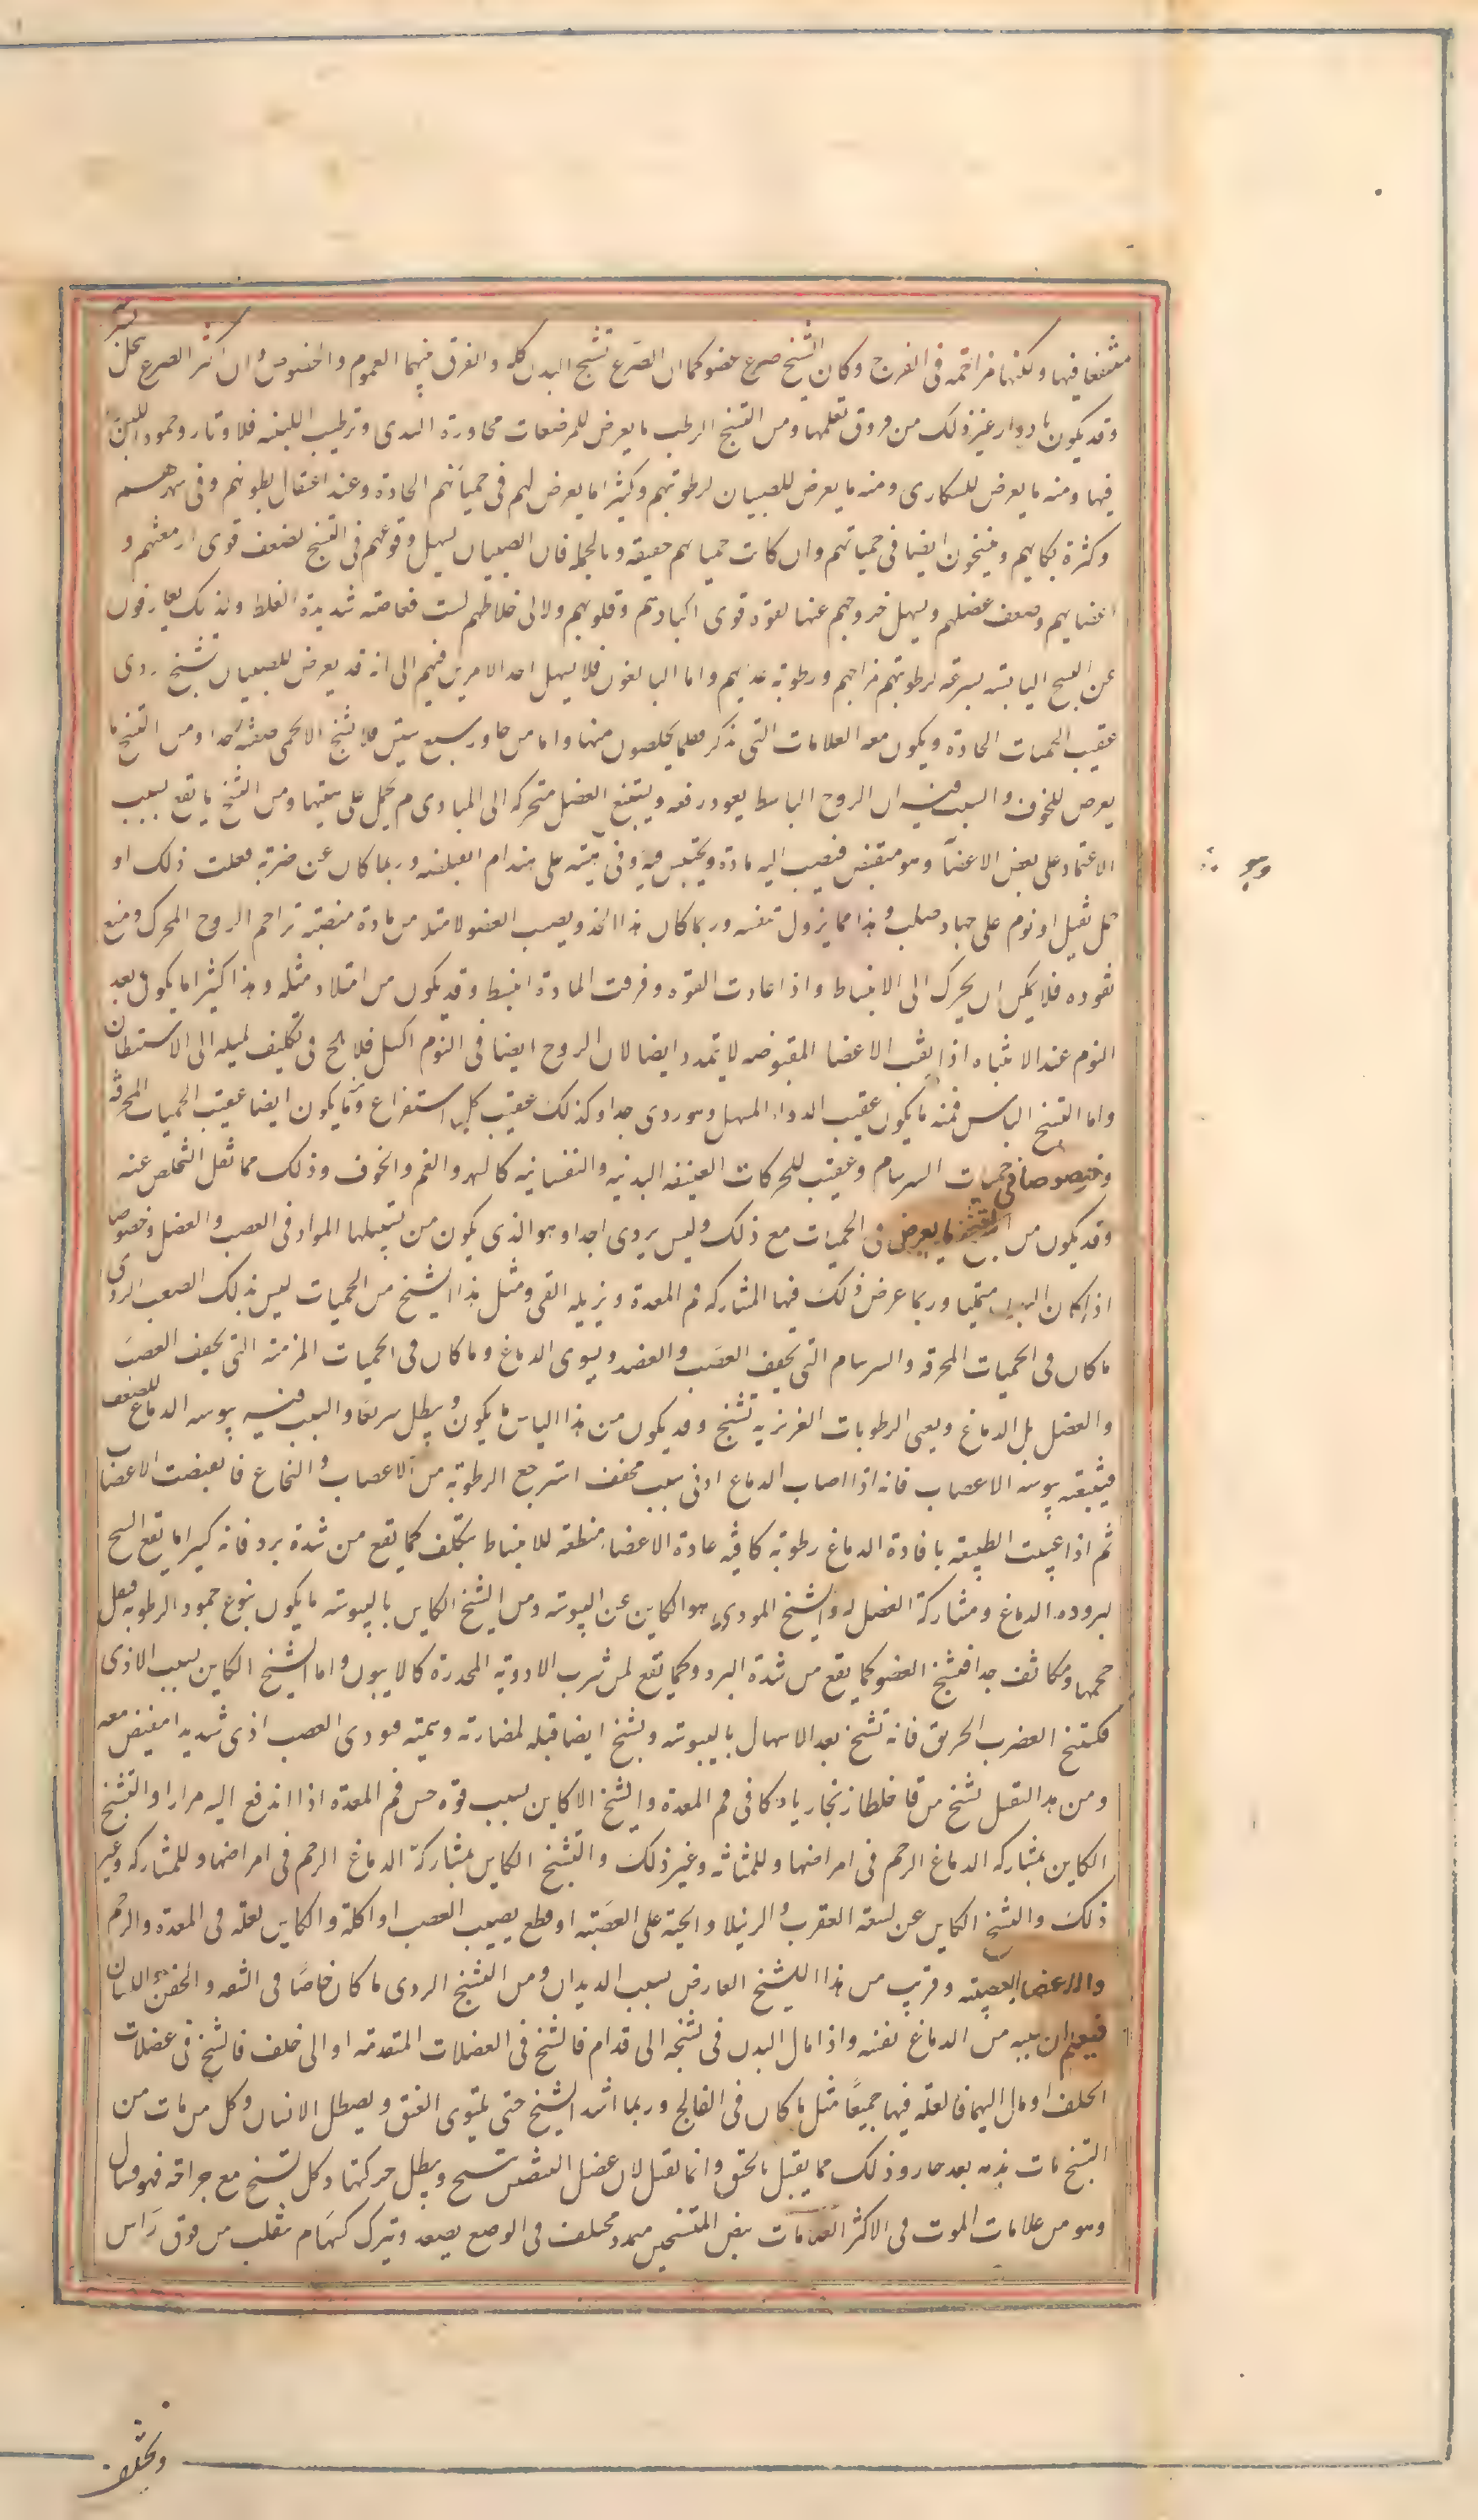 متشنفا فيها ولكنها مزاحمه فى الفرج وكان التشنج صرع عضو كما ان الصرع تشنج البدن كله والفرق فيهما العموم والخصوص وان اكثر الصرع يحل بسرعة
وقد يكون بادوار غير ذلك من فروق تعلمها ومن التشنج الرطب ما يعرض للمرضعات مجاورة الثدى وترطيب اللبنه فلاوتار وجمود اللبن
فيها ومنه ما يعرض للسكارى ومنه ما يعرض للصبيان لرطوبتهم وكثيرا ما يعرض لهم فى حمياتهم الحادة وعند اعتقال بطونهم وفى سهرهم
وكثرة بكايهم ويتشنجون ايضا فى حمياتهم وان كانت حمياتهم خفيفه وبالجمله فان الصبيان يسهل وقوعهم فى التشنج لضعف قوى ادمغتهم و
اعضايهم وضعف عضلهم ويسهل خروجهم عنها لقوة قوى اكبادهم وقلوبهم ولان اخلاطهم ليست شديدة الغلظ ولذلك يعارفون
عن التشنج اليابسة بسرعه لرطوبتهم مزاجهم ورطوبة غذايهم واما البالغون فلا يسهل احد الامرين فيهم الى انه قد يعرض للصبيان تشنج ردى
عقيب الحميات الحادة ويكون معه العلامات التى نذكر فقلما يخلصون منها واما من جاوز سبع سنين فلا تشنج الا لحمى صعبه جدا ومن التشنج ما
يعرض للخوف والسبب فيه ان الروح الباسط يعود رفعه ويستتبع العضل متحركه الى المبادى ثم يحمل على هيئتها ومن التشنج ما يقع بسبب
الاعتماد على بعض الاعضا وهو منقبض فينصب اليه مادة ويحتبس فيه وفى هيئته على هندام العضلة وربما كان عن ضربة فعلت ذلك او
حمل ثقيل او نوم على مهاد صلب وهذا مما يزول بنفسه وربما كان هذا الخدر يصيب العضو لامتلا من مادة منصبة تزاحم الروح المحرك ومنع
نفوذه فلا يمكن ان يحرك الى الانبساط واذا عادت القوه وفرقت المادة انبسط وقد يكون من امتلا ومثله وهذا كثيرا ما يكون بعد
النوم عند الانتباه اذا بقيت الاعضا المقبوضه لا تمدد ايضا لان الروح ايضا فى النوم اكسل فلا يلح فى تكليف لميله الى الاستبطان
واما التشنج اليابس فمنه ما يكون عقيب الدواء المسهل وهو ردى جدا وكذلك عقيب كل استفراغ ومنه ما يكون ايضا عقيب الحميات المحرقه
وخصوصا فى حميات السرسام وعقيب للحركات العنيفه البدنيه والنفسانيه كالسهر والغم والخوف وذلك مما ثقل التخلص عنه
وقد يكون من التشنج ما يعرض فى الحميات مع ذلك وليس بردى جدا وهو الذى يكون من تسيلها المواد فى العصب والعضل وخصوصا
اذا كان البدن ممتليا وربما عرض ذلك فيها المشاركه فم المعدة ويزيله القى ومثل هذا التشنج من الحميات ليس بذلك الصعب الردى
ما كان فى الحميات المحرقه والسرسام التى يجفف العصب والعضد ويسوى الدماغ وما كان فى الحميات المزمنه التى يجفف العصب
والعضل بل الدماغ ويعى الرطوبات الغريزيه تشنج وقد يكون من هذا اليابس ما يكون ويبطل سريعا والسبب فيه يبوسه الدماغ للضعف
فيتبعه يبوسه الاعصاب فانه اذا اصاب الدماغ ادنى سبب مجفف استرجع الرطوبة من الاعصاب والنخاع فانقبضت الاعصاب
ثم اذا عنيت الطبيعة بافادة الدماغ رطوبة كافية عادة الاعضاء منطلقه للانبساط بتكلف كما يقع من شدة برد فانه كثيرا ما يقع التشنج
لبرودة الدماغ ومشاركة العضل له والتشنج الموذى هو الكاين عن اليبوسه ومن التشنج الكاين باليبوسه ما يكون بنوع جمود الرطوبة فيقل
حجمها وتكاثف جدا فتشنج العضو كما يقع من شدة البرد وكما يقع لمن شرب الادوية المخدرة كالافيون واما التشنج الكاين بسبب الاذى
فكتشنج العضرب الحريق فانه تشنج بعد الاسهال باليبوسه وتشنج ايضا قبله لمضارته وسميته فيوذى العصب اذى شديدا منقبض معه
ومن هذا القبيل تشنج من قا خلطا زنجاريا وكافى فم المعدة والتشنج الكاين بسبب قوة حس فم المعدة اذا اندفع اليه مرارا والتشنج
الكاين بمشاركه الدماغ الرحم فى امراضها وللمثانه وغير ذلك والتشنج الكاين بمشاركة الدماغ الرحم فى امراضها وللمشاركه وغير
ذلك والتشنج الكاين عن لسعة العقرب والرتيلا والحية على العصبة او قطع يصيب العصب او اكلة والكاين لعله فى المعدة والرحم
والاعضا العصبيه وقريب من هذا التشنج العارض بسبب الديدان ومن التشنج الردى ما كان خاصا فى الشفه والجفن واللسان
فيعلم ان سببه من الدماغ نفسه واذا مال البدن فى تشنجه الى قدام فالتشنج فى العضلات المتقدمه او الى خلف فالتشنج فى عضلات
الخلف او مال اليهما فالعله فيها جميعا مثل ما كان فى الفالج وربما اشتد التشنج حتى يلتوى العنق ويصطل الاسنان وكل من مات من
التشنج مات بدنه بعد حار وذلك مما يقتل بالخنق وانما يقتل لان عضل التنفس تتشنج ويبطل حركتها وكل تشنج مع جراحة فهو قتال
وهو من علامات الموت فى الاكثر العلامات نبض المتشنجين ممدد مختلف فى الوضع يصعد ويترك كسهام تنقلب من فوق راس
ويختلف